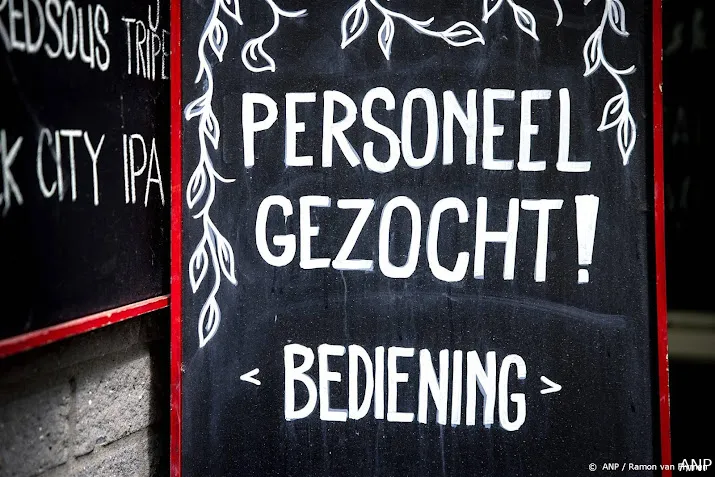 REDSOUS
TRIPE
CITY IPA
PERSONEEL
GEZOCHT!
< BEDIENING >
© ANP / Ramon van Flymen
ANP